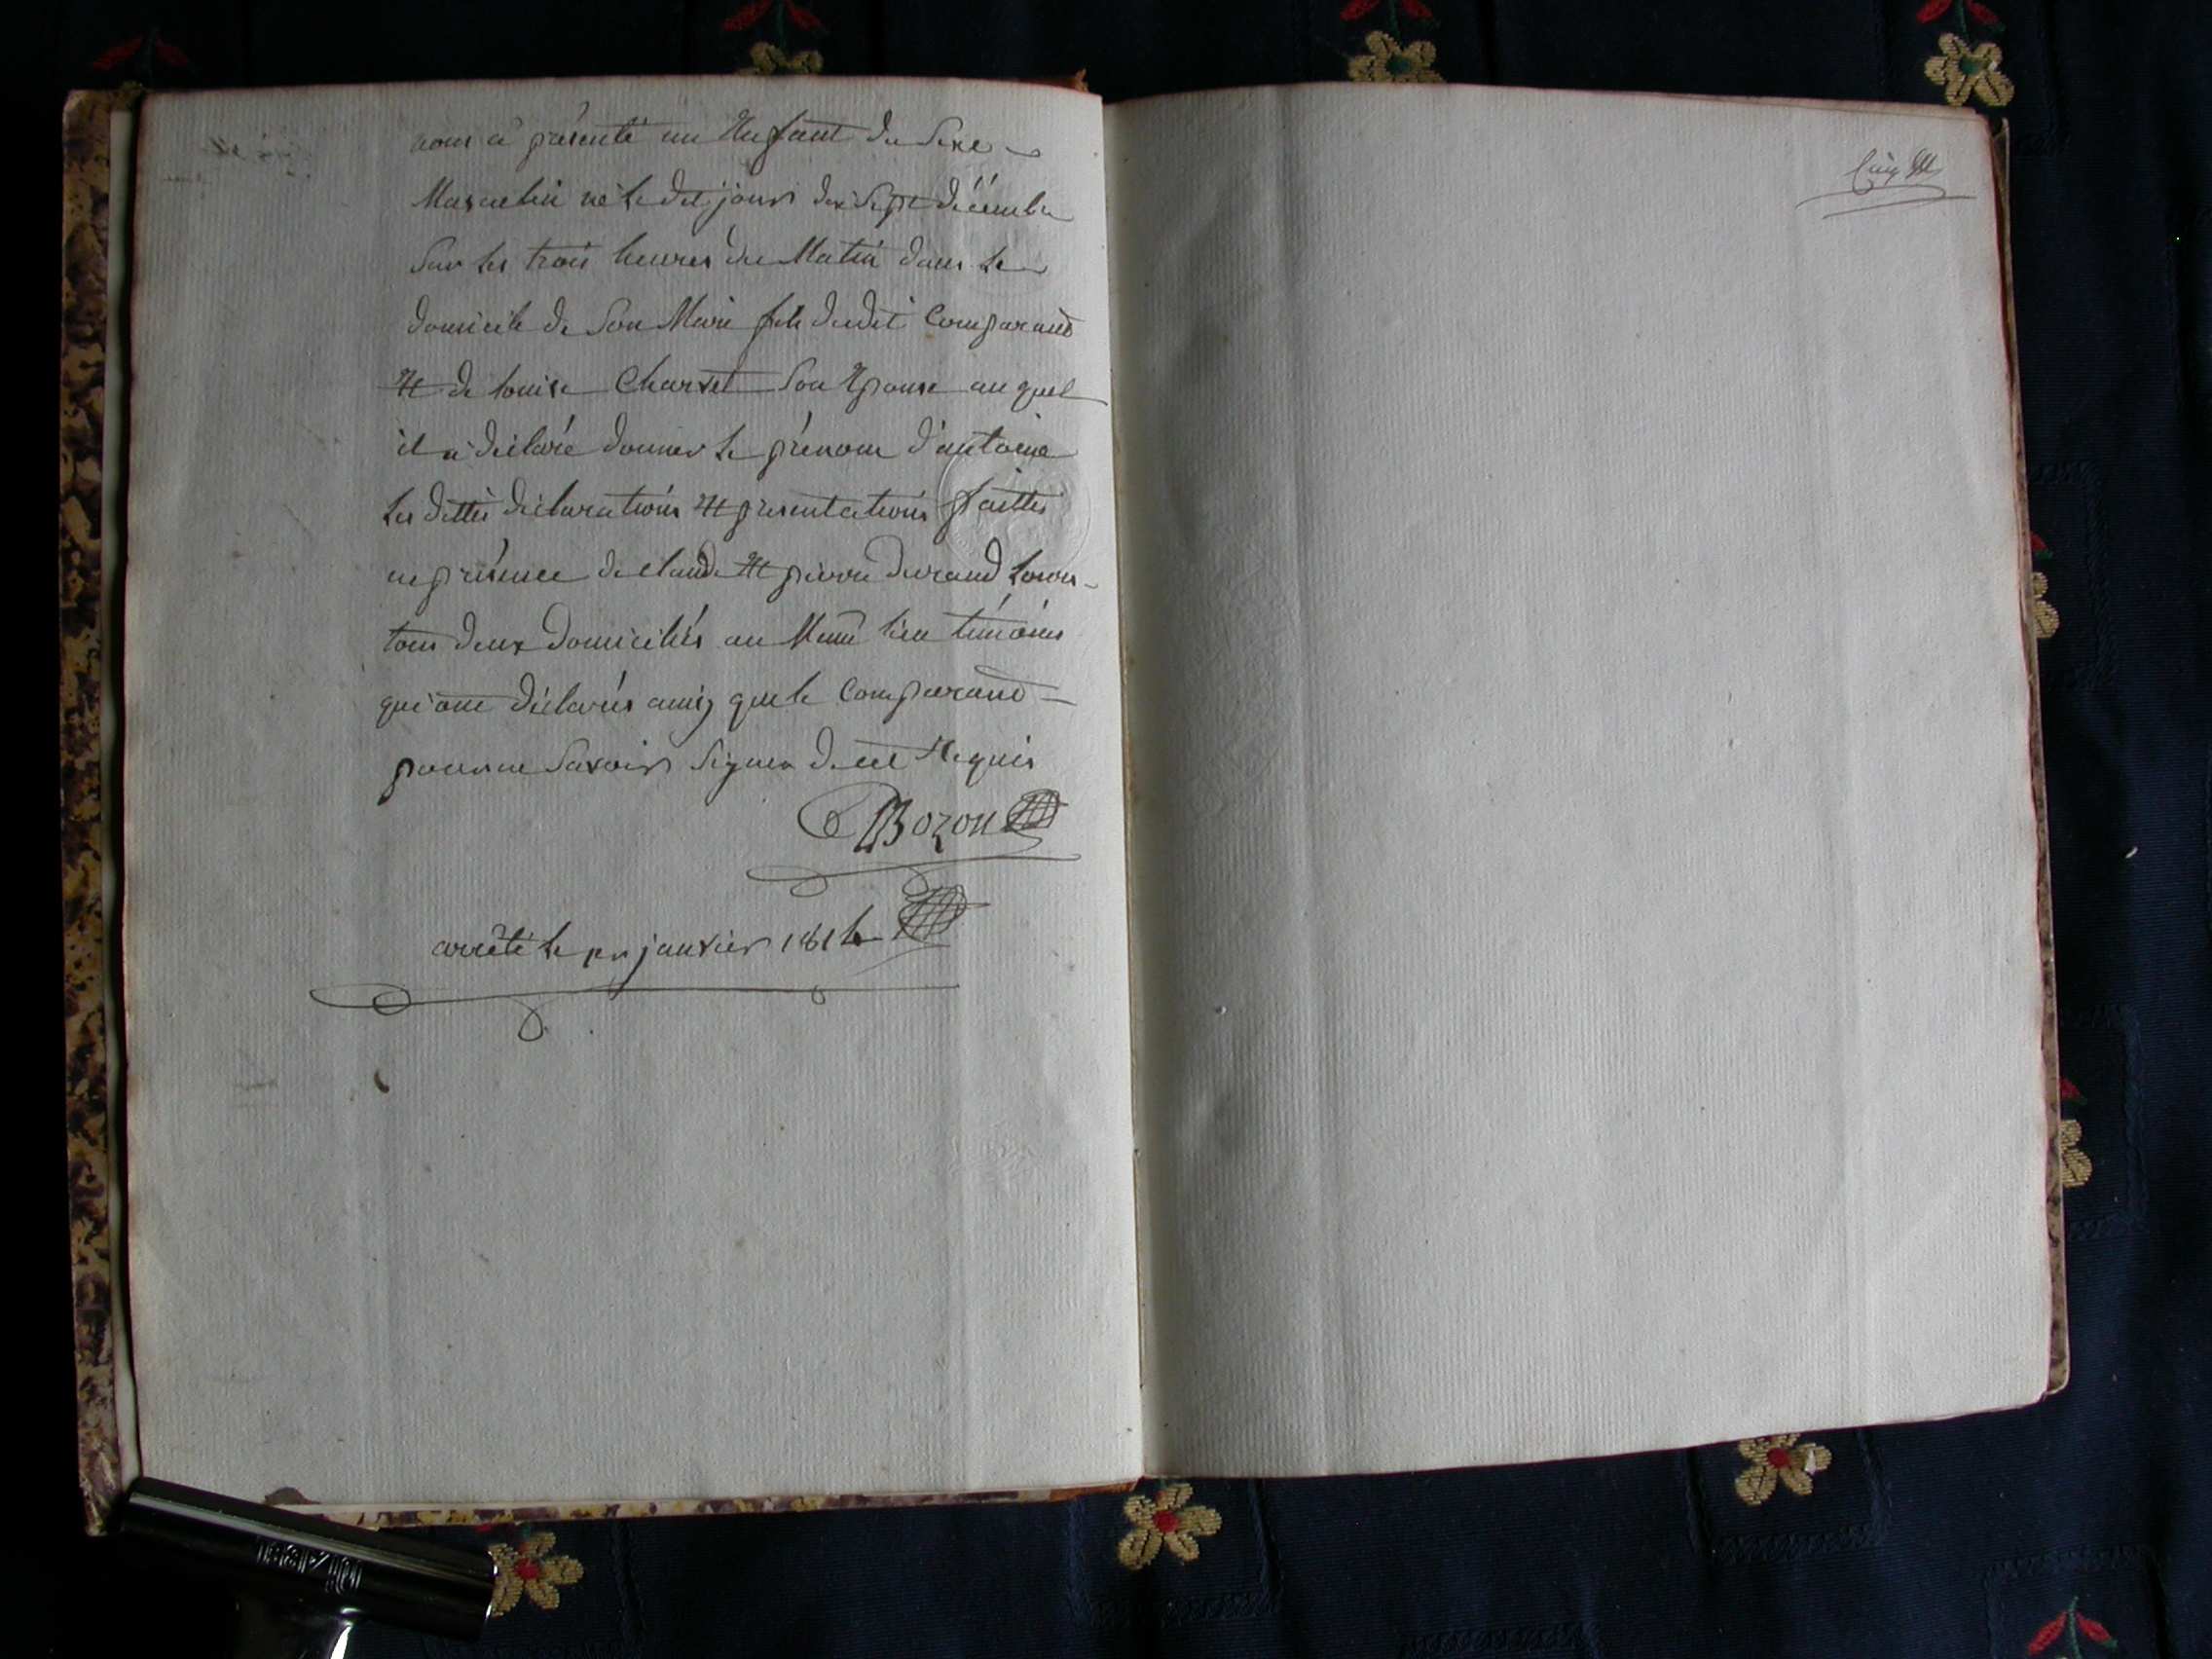 nous a présenté un Enfant du Sexe
Masculin né le dit jour dix Sept décembre
Sur les trois heures du Matin dans le
domicile de Son Maire fils dudit Comparand
Et de louise Charvet Son Epouse au quel
il a déclaré donner le prénom d'antoine
les dittes déclarations Et presentations faittes
en présence de claude Et pierre durand
tous deux domiciliés au Meme lieu témoins
qui ont déclarés ainsy que le Comparand
pour ne Savoir Signer de ce Requis
Bozon
arrêté le pr janvier
Cinq